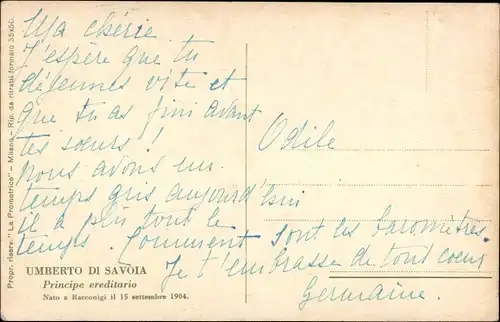 Ma chérie
J'espère que tu
déjeunes vite et
que tu as fini avant
tes sœurs !
Nous avons un
temps gris aujourd'hui
il a plu tout le
temps. Comment sont les baromètres.
Je t'embrasse de tout cœur
Germaine.
Odile
UMBERTO DI SAVOIA
Principe ereditario
Nato a Racconigi il 15 settembre 1904.
Propr. riserv. "La Promotrice" - Milano - Rip. da ritratti formato 35x50